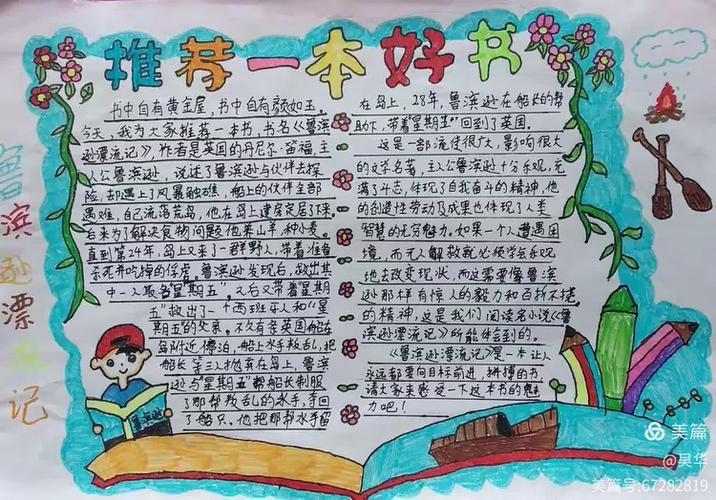 推荐一本好书
鲁滨逊漂流记
书中自有黄金屋，书中自有颜如玉。
今天，我为大家推荐一本书，书名《鲁滨
逊漂流记》，作者是英国的丹尼尔·笛福，主
人公鲁滨逊，说述了鲁滨逊与伙伴去探
险，却遇上了风暴触礁，船上的伙伴全部
遇难，自己流落荒岛，他在岛上建房定居了下来。
后来为了解决食物问题他养山羊，种小麦。
直到第24年，岛上又来了一群野人，带着准备
杀死并吃掉的俘虏，鲁滨逊发现后，救出其
中一人取名星“期五”。又后又带着星期
五“救出了一个西班牙人和“星
期五的父亲。不久有条英国船在
岛附近停泊，船上水手叛乱，把
船长等三人抛弃在岛上，鲁滨
逊与星期五“帮船长制服
了那帮叛乱的水手，夺回
了船只。他把那帮水手留
在岛上，28年，鲁滨逊在船长的帮
助下，带着“星期五”回到了英国。
这是一部流传很广，影响很大
的文学名著，主人公鲁滨逊十分乐观，充
满了斗志，体现了自我奋斗的精神，他
的创造性劳动及成果也体现了人类
智慧的无穷魅力。如果一个人遭遇困
境，而无人解救就必须学会乐观
地去改变现状，而这需要像鲁滨
逊那样有惊人的毅力和百折不挠
的精神，这是我们阅读名小说《鲁
滨逊漂流记》所能体会到的。
《鲁滨逊漂流记》是一本让人
永远都要向目标前进，拼搏的书，
请大家来感受一下这本书的魅
力吧！
鲁滨逊
美篇
@吴华
美篇号:67282819